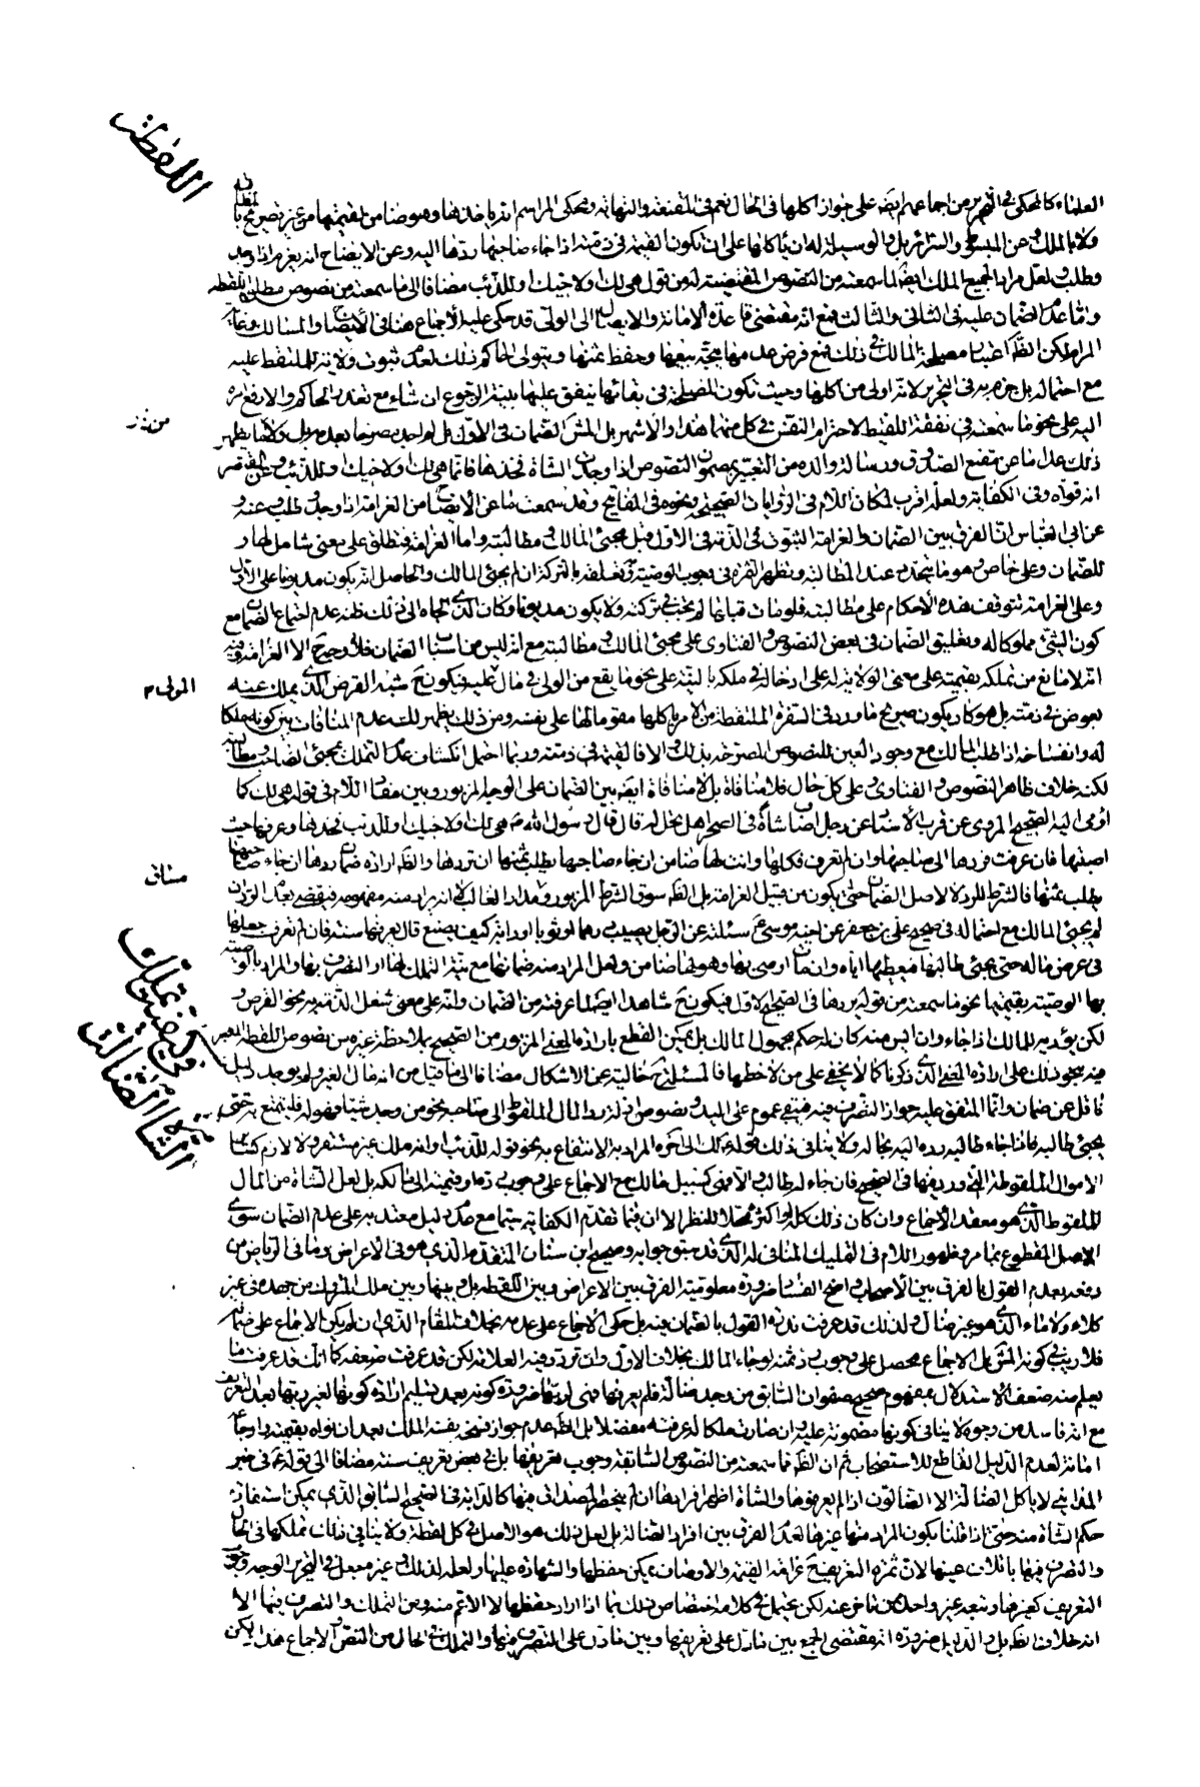 اللقطة
العلماء كالمحكي في التحرير من اجماعهم ايضا على جواز اكلها في الحال نعم في المقنعة والنهاية ومحكي المراسم انه ياخذها وهو ضامن لقيمتها من غير تصريح
ولا بالملك وعن المبسوط والسرائر بل والوسيلة له ان ياكلها على ان تكون القيمة في ذمته اذا جاء صاحبها ردها اليه وعن الايضاح انه يغرم اذا وجد
وطلب ولعل مراد الجميع الملك ايضا لما سمعته من النصوص المقتضية له من قول هي لك او لاخيك او للذئب مضافا الى ما سمعته من نصوص مطلق اللقطة
واما عدم الضمان عليه في الثاني والثالث فمع انه مقتضى قاعدة الامانة والايصال الى الولي قد حكى عليه الاجماع هنا في الايضاح والمسالك وغاية
المرام لكن الظ اعتبار مصلحة المالك في ذلك فمع فرض عدمها يتجه بيعها وحفظ ثمنها ويتولى الحاكم ذلك لعدم ثبوت ولاية للملتقط عليه
مع احتماله بل جزم به في التحرير لانه اولى من اكلها وحيث تكون المصلحة في بقائها ينفق عليها بنية الرجوع ان شاء مع تعذر الحاكم والا رفع امره
اليه على نحو ما سمعته في نفقة اللقيط لاحترام النفس في كل منهما هذا والاشهر بل المش الضمان في الاول بل لم اجد مصرحا بعدمه بل ولا ما يظهر
ذلك عدا ما عن مقنع الصدوق ورسالة والده من التعبير بمضمون النصوص اذا وجدت الشاة فخذها فانما هي لك او لاخيك او للذئب وعن المقتصر
انه قواه وفي الكفاية ولعله اقرب لمكان اللام في الروايات الصحيحة ونحوه في المفاتيح وقد سمعت ما عن الايضاح من الغرامة اذا وجد وطلب وعنه و
عن ابي العباس ان الفرق بين الضمان والغرامة الثبوت في الذمة في الاول قبل مجيئ المالك ومطالبته واما الغرامة فتطلق على معنى شامل لها و
للضمان وعلى خاص وهو ما يتجدد عند المطالبة وتظهر الثمرة في وجوب الوصية وتعلقه بالتركة ان لم يجئ المالك والحاصل انه يكون مديونا على الاول
وعلى الغرامة تتوقف هذه الاحكام على مطالبته فلو مات قبلها لم يجب في تركته ولا يكون مديونا وكان الذي الجأه الى ذلك ظنه عدم اجتماع الضمان مع
كون الشئ مملوكا له وتعليق الضمان في بعض النصوص والفتاوى على مجيئ المالك ومطالبته مع انه ليس من اسباب الضمان فلا وجه ح الا الغرامة وفيه
انه لا مانع من تملكه بقيمته على معنى الولاية له على ادخاله في ملكه بالنية على نحو ما يقع من الولي في مال المولى عليه فيكون ح شبه القرض الذي يملك عينه
بعوض في ذمته بل هو كاد يكون صريح ما ورد في السفرة الملتقطة من الامر باكلها مقوما لها على نفسه ومن ذلك يظهر لك عدم المنافات بين كونه ملكا
له وانفساخه اذا طلبه المالك مع وجود العين للنصوص المصرحة بذلك والا فالقيمة في ذمته وربما احتمل انكشاف عدم التملك بمجيئ الصاحب ومطالبته
لكنه خلاف ظاهر النصوص والفتاوى على كل حال فلا منافاة بل لا منافاة ايضا بين الضمان على الوجه المزبور وبين مفاد اللام في قوله هي لك كما
اومى اليه الصحيح المروي عن قرب الاسناد عن رجل اصاب شاة في الصحراء هل تحل له قال قال رسول الله ص هي لك او لاخيك او للذئب فخذها وعرفها حيث
اصبتها فان عرفت فردها الى صاحبها وان لم تعرف فكلها وانت لها ضامن ان جاء صاحبها يطلب ثمنها ان تردها والظ ارادة ضمان ردها ان جاء صاحبها
يطلب ثمنها فالشرط للرد لا لاصل الضمان حتى يكون من قبيل الغرامة بل الظ سوق الشرط المزبور مورد الغالب
لم يجئ المالك مع احتماله في صحيح علي بن جعفر عن اخيه موسى ع سئلته عن الرجل يصيب درهما او ثوبا او دابة كيف يصنع قال يعرفها سنة فان لم تعرف جعلها
في عرض ماله حتى يجئ طالبها فيعطيها اياه وان مات اوصى بها وهو لها ضامن ولعل المراد منه ضمانها مع نية التملك لها او التصرف بها والمراد بالوصية
بها الوصية بقيمتها نحو ما سمعته من قوله يردها في الصحيح الاول فيكون ح شاهدا ايضا لما عرفته من الضمان وانه على معنى شغل الذمة به نحو القرض و
لكن يؤديه للمالك اذا جاء وان ايس منه كان له حكم مجهول المالك بل يمكن القطع بارادة المعنى المزبور من الصحيح بملاحظة غيره من نصوص اللقطة المعبر
فيه بنحو ذلك على ارادة المعنى الذي ذكرنا كما لا يخفى على من لاحظها فالمسئلة ح خالية عن الاشكال مضافا الى ما قيل من انه مال الغير ولم يوجد دليل
ناقل عن ضمان وانما المتفق عليه جواز التصرف فيه فيبقى عموم على اليد ونصوص انه لرد المال الملقوط الى صاحبه نحو من وجد شيئا فهو له فليتمتع به حتى
يجئ طالبه فاذا جاء طالبه رده اليه بحاله ولا ينافي ذلك قوله هي لك الى اخره المراد به الانتفاع به نحو قوله للذئب او انه ملك غير مستقر ولا لازم كسائر
الاموال الملقوطة التي ورد فيها في الصحيح فان جاء له طالب والا فهي كسبيل ماله مع الاجماع على وجوب ردها وقيمته الى مالكه بل لعل الشاة من المال
الملقوط الذي هو معقد الاجماع وان كان ذلك كله او اكثر محتملا للنظر الا ان فيما تقدم الكفاية سيما مع عدم دليل معتد به على عدم الضمان سوى
الاصل المقطوع بما مر وظهور اللام في التمليك المنافي له الذي قد سبق جوابه وصحيح ابن سنان المتقدم الذي هو في الاعراض وما في الرياض من
دفعه بعدم القول بالفرق بين الاصحاب واضح الفساد ضرورة معلومية الفرق بين الاعراض وبين اللقطة بل وبينها وبين ملك المتروك من جهد في غير
كلاء ولا ماء الذي هو غير ضال ولذلك قد عرفت ندرة القول بالضمان فيه بل حكى الاجماع على عدمه بخلاف المقام الذي ان لم يكن الاجماع على ضمانه
فلا ريب في كونه المش بل الاجماع محصل على وجوب ذمته لو جاء المالك بخلاف الاول وان تردد فيه العلامة لكن قد عرفت ضعفه كما انك قد عرفت مما
يعلم منه ضعف الاستدلال بمفهوم صحيح صفوان السابق من وجد ضالة فلم يعرفها فهي لربها ضرورة كونه بعد تسليم ارادة كونها لغير ربها بعد التعريف
مع انه فاسد من وجوه لا ينافي كونها مضمونة عليه وان صارت ملكا له عرفته مفصلا بل الظ عدم جواز فسخه بنية الملك بعد ان نواه بقيمته وارجاعه
امانة لعدم الدليل القاطع للاستصحاب ثم ان الظ مما سمعته من النصوص السابقة وجوب تعريفها بل في بعض تعريف سنة مضافا الى قوله ع في خبر
المدايني لا ياكل الضالة الا الضالون اذا لم يعرفوها والشاة اظهر افرادها ان لم ينحصر المصداق فيها كالدابة في الصحيح السابق الذي يمكن استفادة
حكم الشاة منه حتى اذا قلنا بكون المراد منها غيرها لعدم الفرق بين افراد الضالة بل لعل ذلك هو الاصل في كل لقطة ولا ينافي ذلك تملكها في الحال
والتصرف فيها باتلاف عينها لان ثمرة التعريف ح غرامة القيمة والاوصاف يمكن حفظها والشهادة عليها ولعله لذلك وغيره جعل في التحرير الوجه وجوب
التعريف كغيرها وتبعه غير واحد ممن تاخر عنه لكن يحتمل في كلامه اختصاص ذلك بما اذا اراد حفظها لا الاعم منه ومن التملك والتصرف فيها الا
انه خلاف الظ بل والدليل ضرورة انه مقتضى الجمع بين ما دل على تعريفها وبين ما دل على التصرف فيها والتملك في الحال من النص والاجماع هذا ولكن
من نذر
المولى م
منافى
في كيفية تملك الشاة الضالة